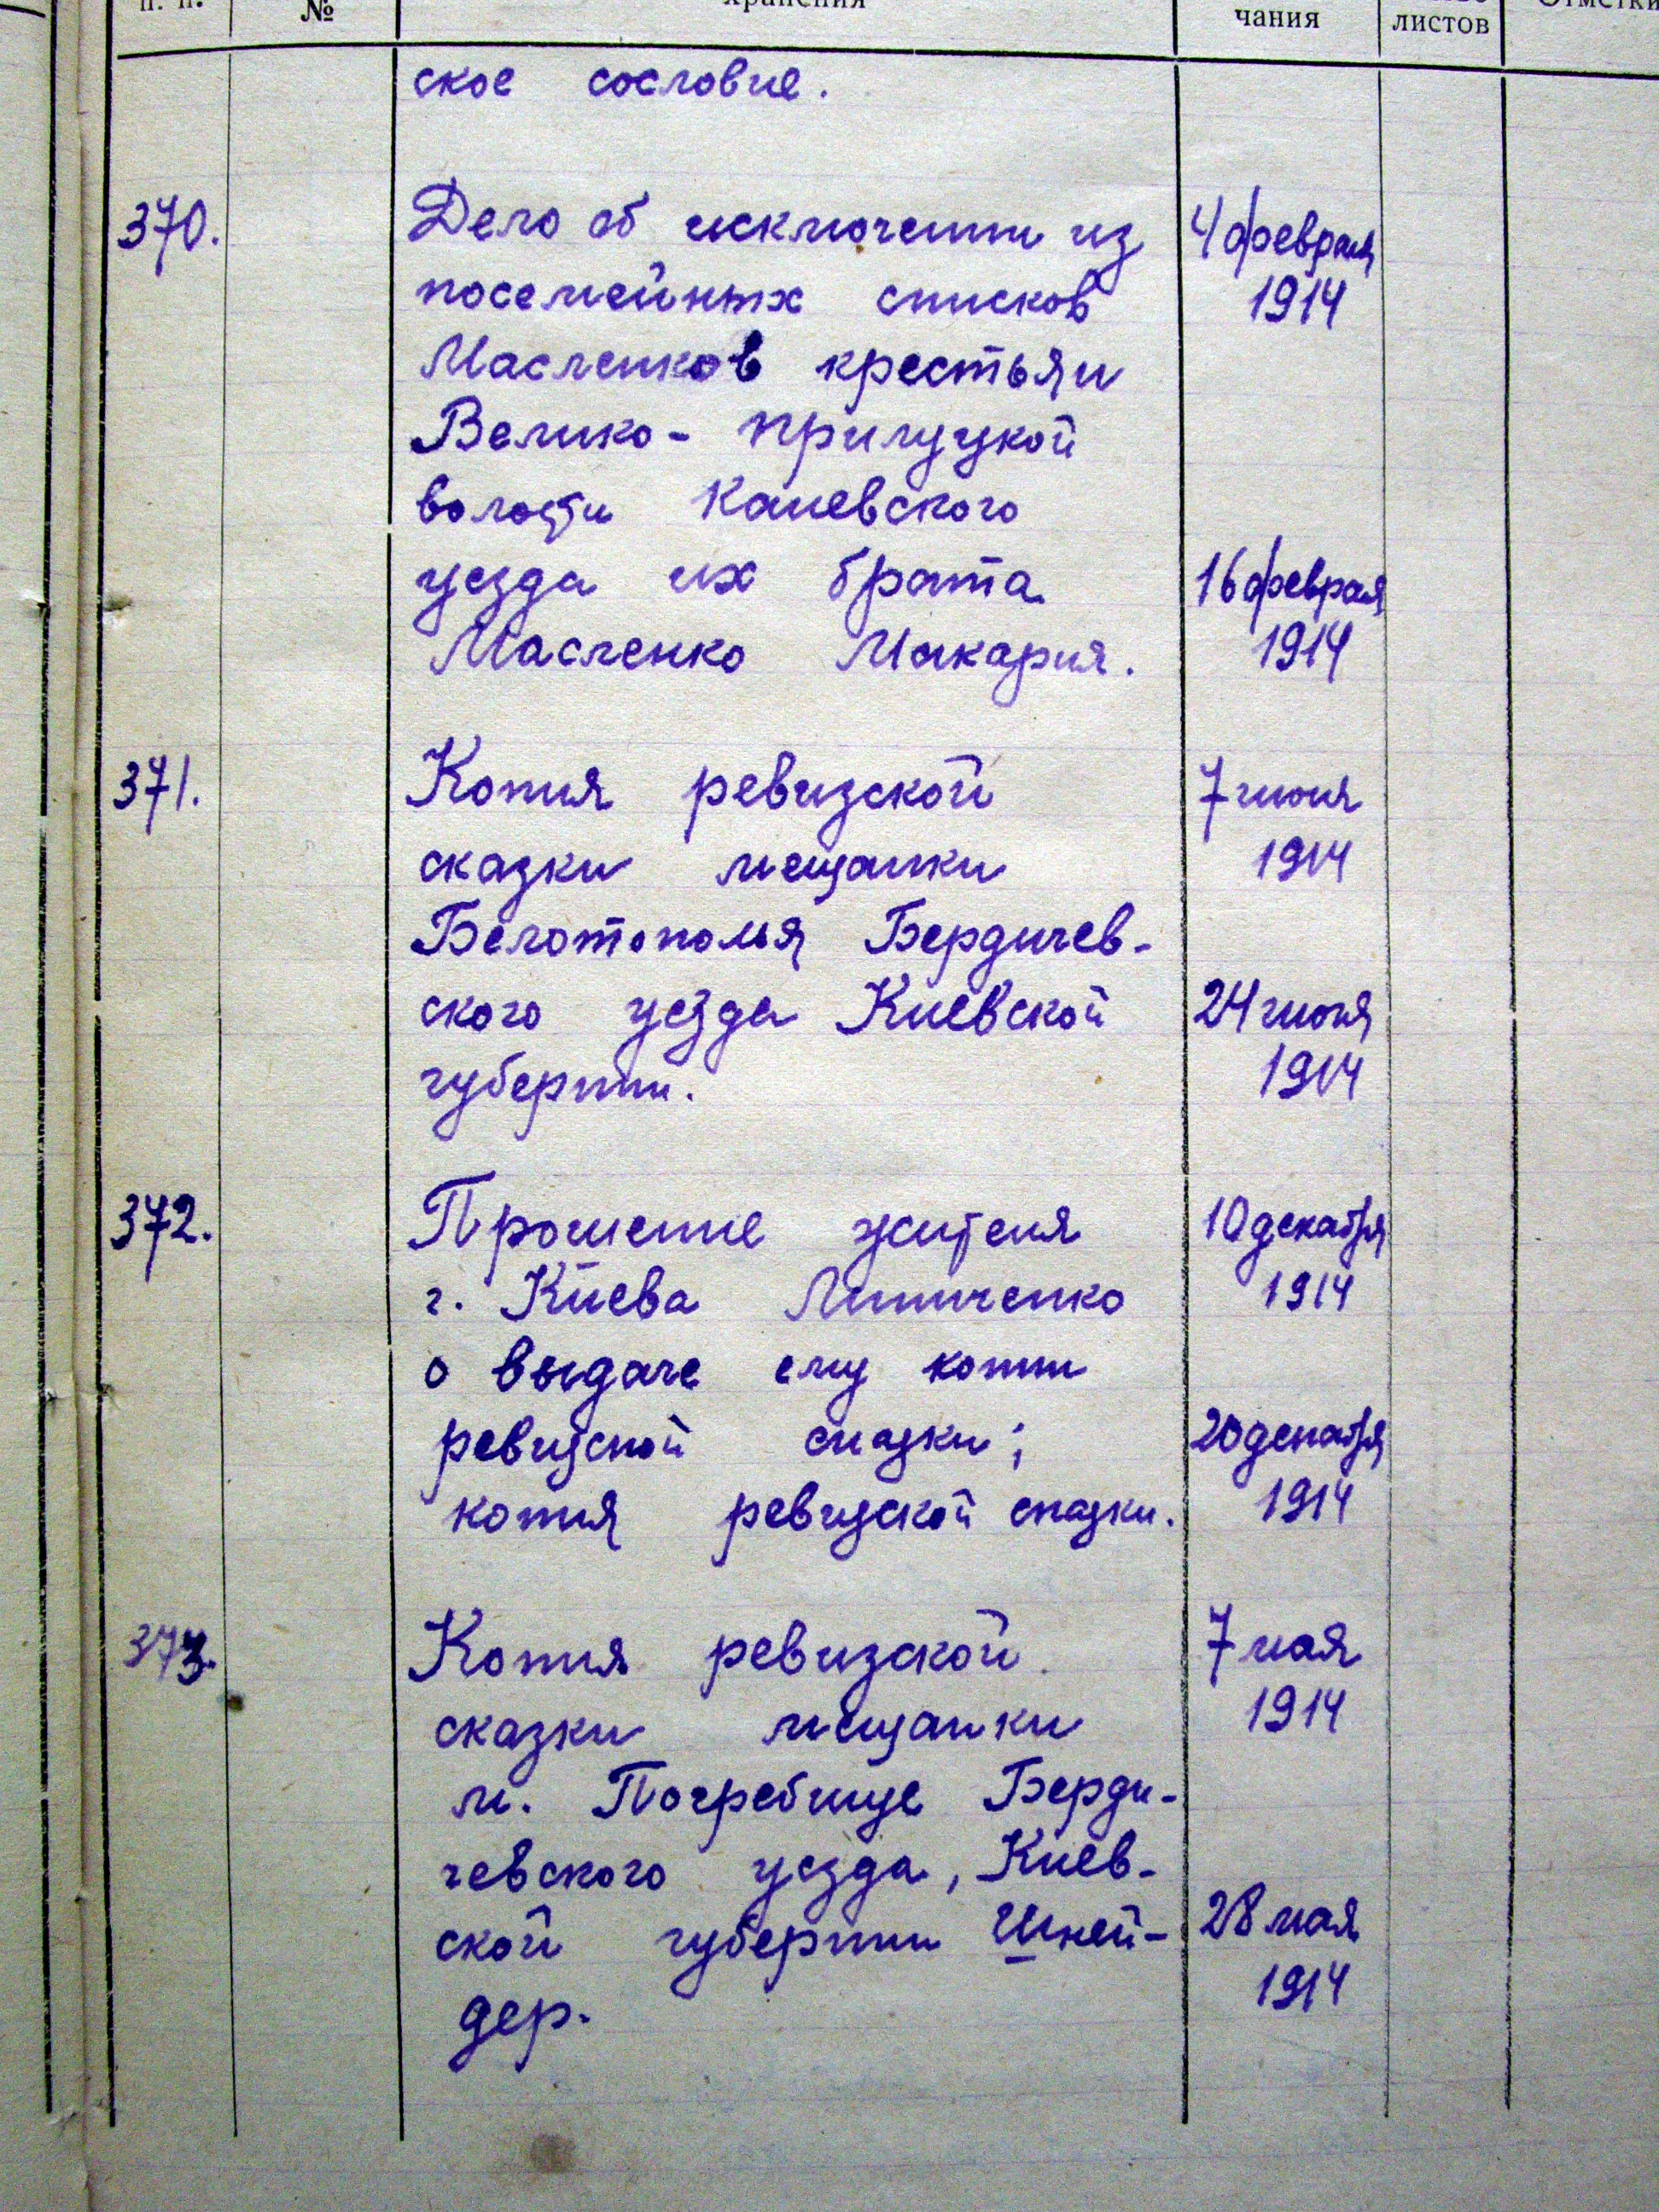 п. п. № хранения чания листов
ское сословие.
370. Дело об исключении из 4 февраля
посемейных списков 1914
Масленков крестьян
Велико-Прилуцкой
волости Каневского
уезда их брата 16 февраля
Масленко Макария. 1914
371. Копия ревизской 7 июня
сказки мещанки 1914
Белотополья Бердичев-
ского уезда Киевской 24 июня
губернии. 1914
372. Прошение жителя 10 декабря
г. Киева 1914
о выдаче ему копии
ревизской сказки; 20 декабря
копия ревизской сказки. 1914
373. Копия ревизской 7 мая
сказки мещанки 1914
м. Погребище Берди-
чевского уезда, Киев-
ской губернии Шней- 28 мая
дер. 1914